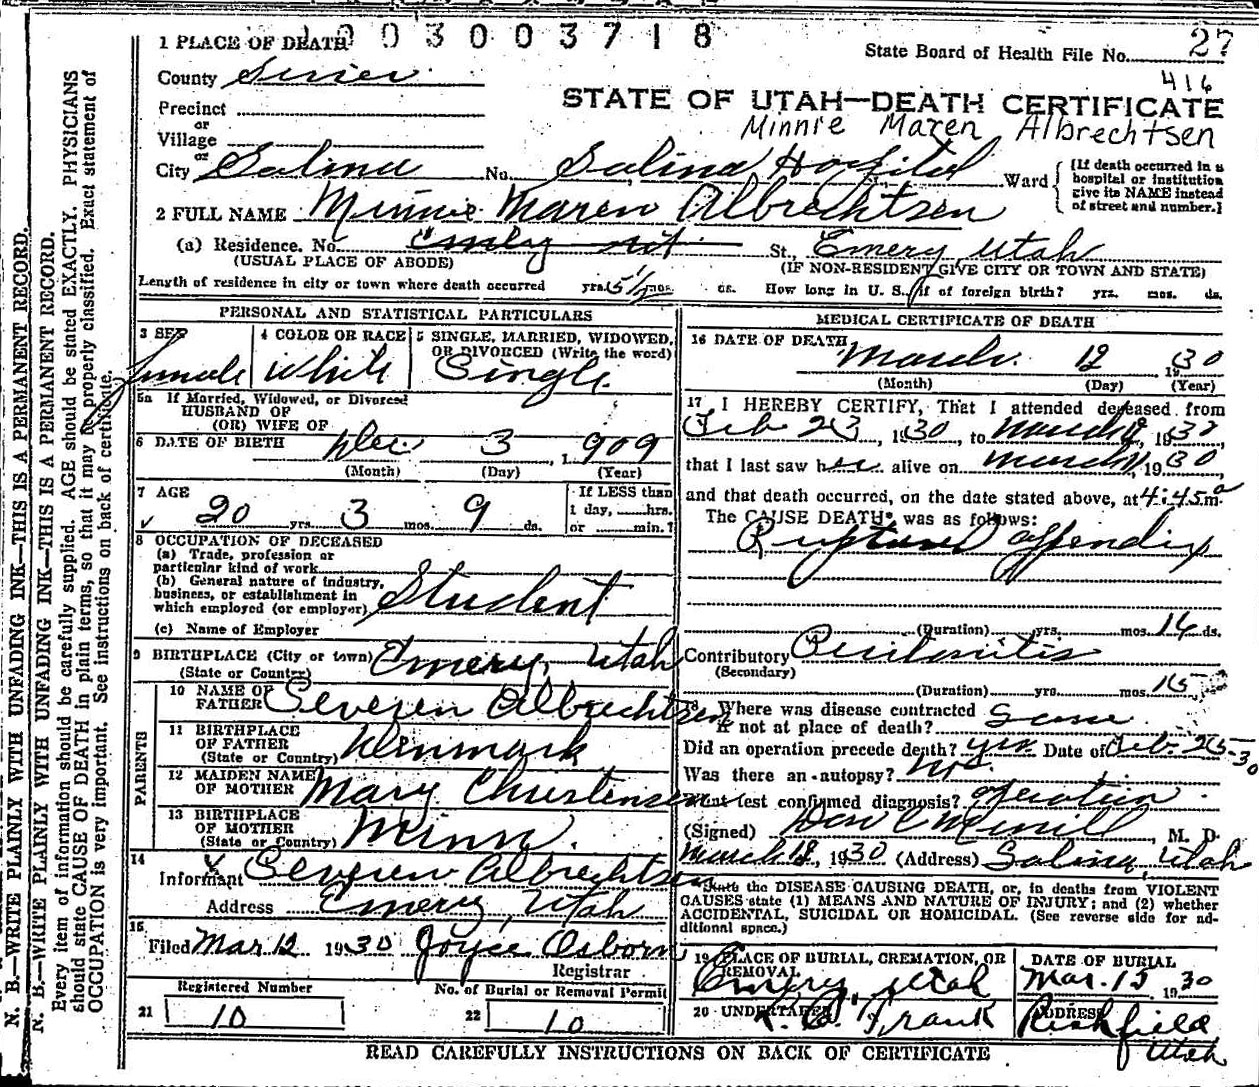 1 PLACE OF DEATH
003003718
State Board of Health File No. 27
County Sevier
416
STATE OF UTAH—DEATH CERTIFICATE
Precinct
Minnie Maren Albrechtsen
or
Village
or
City Salina No. Salina Hospital St. Ward
[If death occurred in a
hospital or institution
give its NAME instead
of street and number.]
2 FULL NAME Minnie Maren Albrechtsen
(a) Residence. No. St., Emery, Utah
(USUAL PLACE OF ABODE)
(IF NON-RESIDENT GIVE CITY OR TOWN AND STATE)
Length of residence in city or town where death occurred yrs. mos. ds. How long in U. S., if of foreign birth? yrs. mos. ds.
PERSONAL AND STATISTICAL PARTICULARS
3 SEX
female
4 COLOR OR RACE
White
5 SINGLE, MARRIED, WIDOWED,
OR DIVORCED (Write the word)
Single
5a If Married, Widowed, or Divorced
HUSBAND OF
(OR) WIFE OF
6 DATE OF BIRTH Dec 3, 1909
(Month) (Day) (Year)
7 AGE
20 yrs. 3 mos. 9 ds.
If LESS than
1 day, hrs.
or min.?
8 OCCUPATION OF DECEASED
(a) Trade, profession or
particular kind of work
(b) General nature of industry,
business, or establishment in
which employed (or employer) Student
(c) Name of Employer
9 BIRTHPLACE (City or town) Emery, Utah
(State or Country)
PARENTS
10 NAME OF
FATHER Severen Albrechtsen
11 BIRTHPLACE
OF FATHER
(State or Country) Denmark
12 MAIDEN NAME
OF MOTHER Mary Christensen
13 BIRTHPLACE
OF MOTHER
(State or Country) Minn.
14
Informant Severen Albrechtsen
Address Emery, Utah
15
Filed Mar 12 1930 Joyce Osborn
Registrar
Registered Number
21 10
No. of Burial or Removal Permit
22 10
MEDICAL CERTIFICATE OF DEATH
16 DATE OF DEATH
March 12 1930
(Month) (Day) (Year)
17 I HEREBY CERTIFY, That I attended deceased from
Feb 23, 1930, to March 12, 1930
that I last saw her alive on March 1930
and that death occurred, on the date stated above, at 4:45 a m.
The CAUSE DEATH* was as follows:
Ruptured appendix
(Duration) yrs. mos. ds.
Contributory Peritonitis
(Secondary)
(Duration) yrs. mos.
18 Where was disease contracted
if not at place of death? Same
Did an operation precede death? yes Date of Feb. 25-30
Was there an autopsy? no.
What test confirmed diagnosis? operation
(Signed) Merrill, M. D.
March 18, 1930 (Address) Salina, Utah
*State the DISEASE CAUSING DEATH, or, in deaths from VIOLENT
CAUSES state (1) MEANS AND NATURE OF INJURY; and (2) whether
ACCIDENTAL, SUICIDAL OR HOMICIDAL. (See reverse side for ad-
ditional space.)
19 PLACE OF BURIAL, CREMATION, OR
REMOVAL
Emery, Utah
DATE OF BURIAL
Mar. 15 1930
20 UNDERTAKER
Frank
ADDRESS
Richfield
Utah
READ CAREFULLY INSTRUCTIONS ON BACK OF CERTIFICATE
N. B.—WRITE PLAINLY WITH UNFADING INK—THIS IS A PERMANENT RECORD.
N. B.—WRITE PLAINLY WITH UNFADING INK—THIS IS A PERMANENT RECORD.
Every item of information should be carefully supplied. AGE should be stated EXACTLY. PHYSICIANS
should state CAUSE OF DEATH in plain terms, so that it may be properly classified. Exact statement of
OCCUPATION is very important. See instructions on back of certificate.